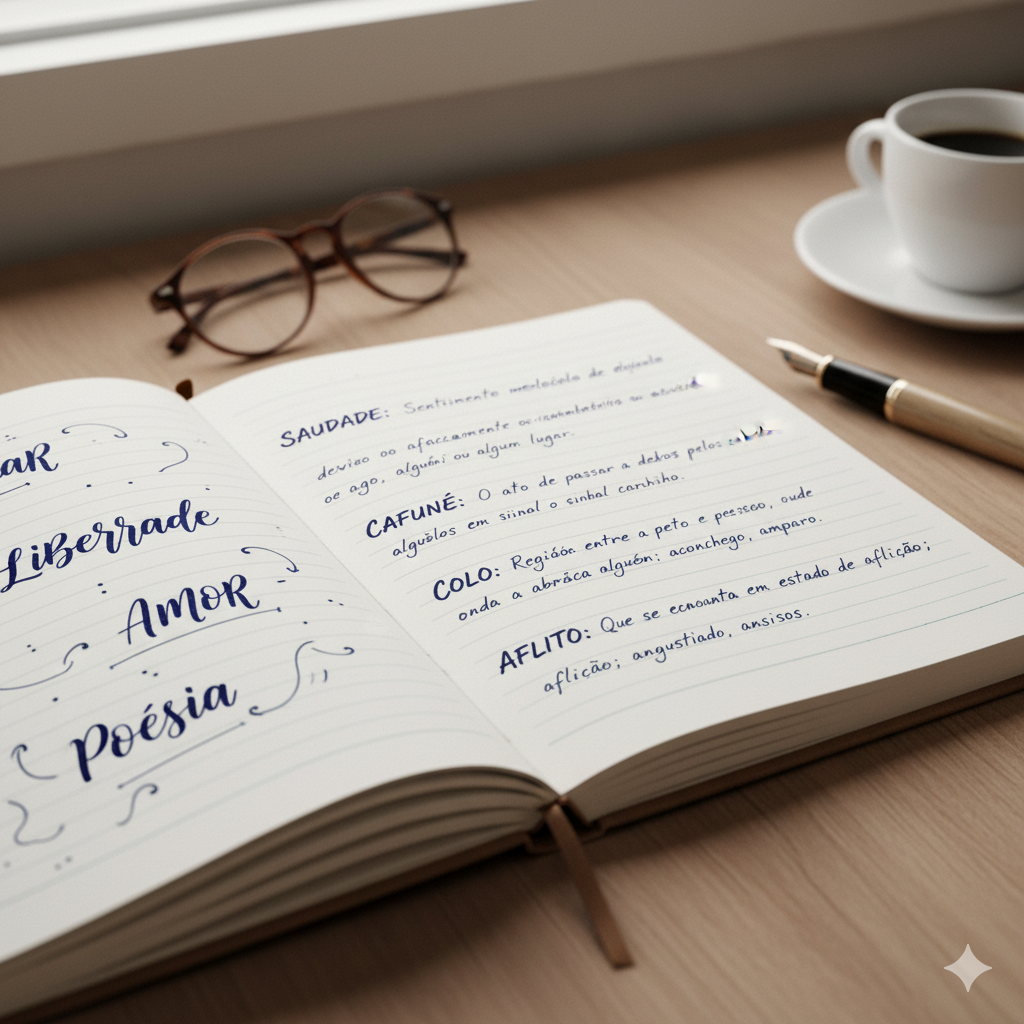 aR
LiBerrade
AMOR
Poésia
SAUDADE: Sentiimento de
devieo oo
oe ago, alguéni ou algum lugar.
CAFUNÉ: O ato de passar a debas pelos
em siinal o sinbal carihiho.
COLO: Regiáòn entre a peto e oude
onda a abráca alguén: aconchego, amparo.
AFLITO: Que se ecnoanta em estado de aflição;
aflicão; angustiado, ansisos.